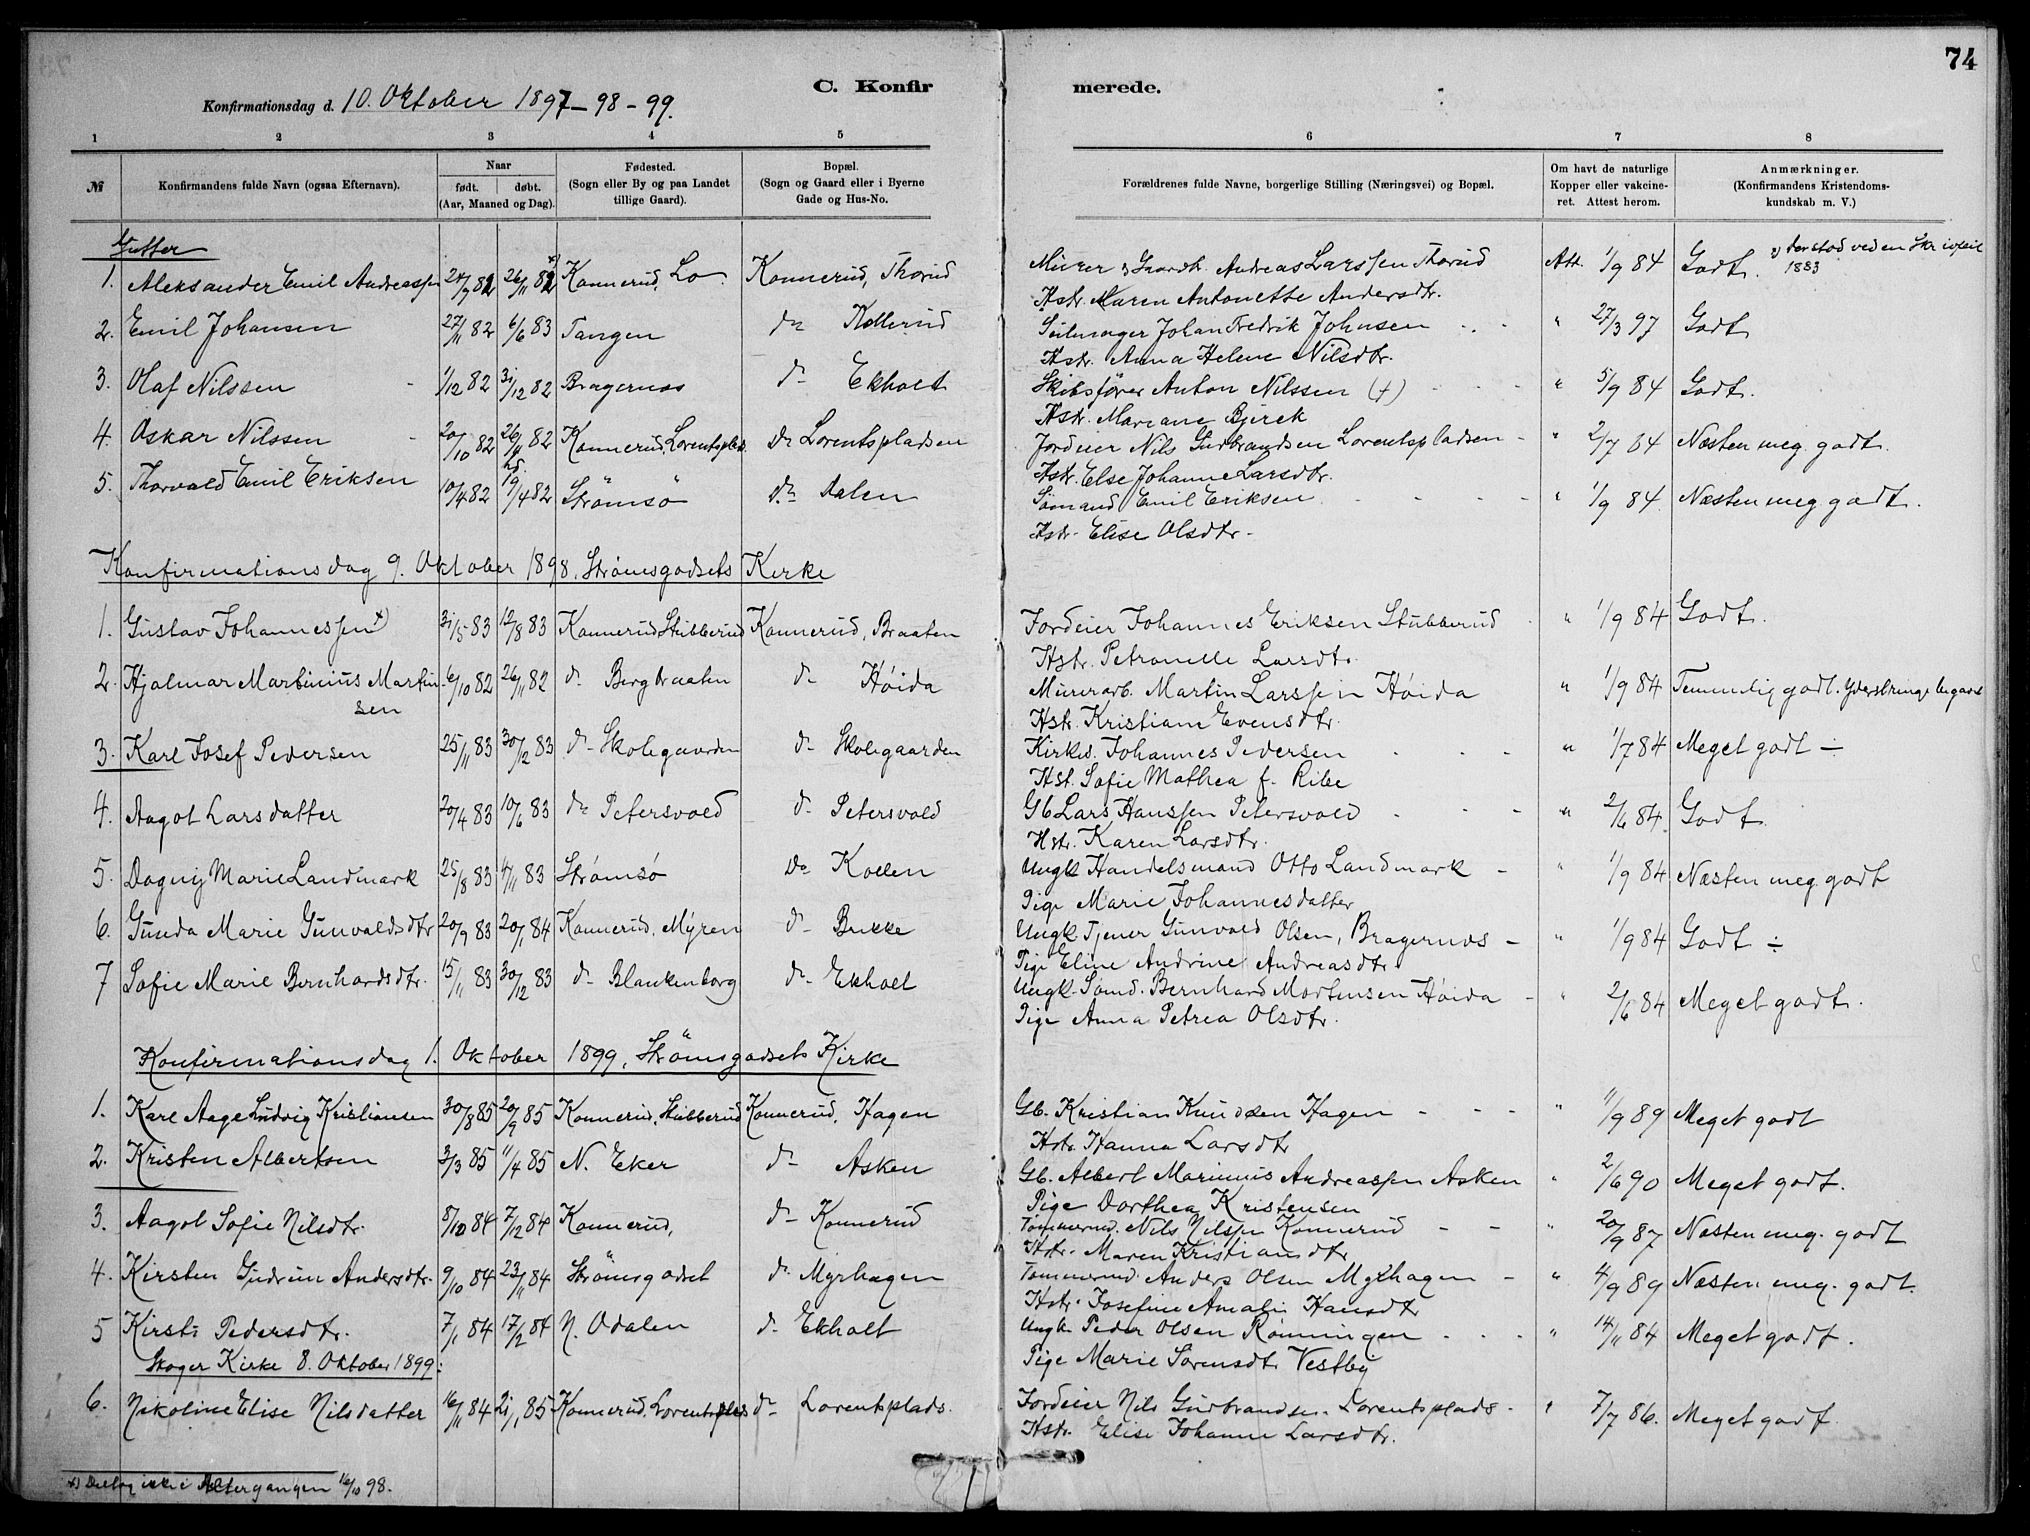 74
C. Konfirmerede.
Konfirmationsdag d. 10. Oktober 1897 - 98 - 99.
1 2 3 4 5 6 7 8
№ Konfirmandens fulde Navn (ogsaa Efternavn). Naar født. døbt. (Aar, Maaned og Dag). Fødested. (Sogn eller By og paa Landet tillige Gaard). Bopæl. (Sogn og Gaard eller i Byerne Gade og Hus-No. Forældrenes fulde Navne, borgerlige Stilling (Næringsvei) og Bopæl. Om havt de naturlige Kopper eller vakcineret. Attest herom. Anmærkninger. (Konfirmandens Kristendomskundskab m. V.)
Gutter
1. Aleksander Emil Andreassen 24/7 82 26/11 82 Konnerud, Lo Konnerud, Thorud Murer Andreas Larssen Thorud Att. 1/9 84 Godt. 1883
Hstr. Maren Antonette Andersdtr.
2. Emil Johansen 27/11 82 6/6 83 Tangen do Kollerud Seilmager Johan Fredrik Johnsen " 27/3 97 Godt
Hstr. Anna Helene Nilsdtr.
3. Olaf Nilssen 1/12 82 31/12 82 Bragernæs do Ekholt Skibsfører Anton Nilssen (+) " 5/9 84 Godt.
Hstr. Mariane Bjerek
4. Oskar Nilssen 20/10 82 26/11 82 Konnerud, Lorentsplads do Lorentspladsen Jordeier Nils Gudbrandsen Lorentspladsen " 2/7 84 Næsten meg. godt.
Hstr. Else Johanne Larsdtr.
5. Thorvald Emil Eriksen 10/4 82 19/4 82 Strømsö do Dalen Sömand Emil Eriksen " 1/9 84 Næsten meg. godt.
Hstr. Elise Olsdtr.
Konfirmationsdag 9. Oktober 1898. Strømsgodsets Kirke
1. Gustav Johannessen x) 31/5 83 12/8 83 Konnerud, Stubberud Konnerud, Braaten Jordeier Johannes Eriksen Stubberud " 1/9 84 Godt.
Hstr. Petronelle Larsdtr.
2. Hjalmar Martinius Martinsen 6/10 82 26/11 82 do Bergbraaten do Høida Murerarb. Martin Larssen Høida " 1/9 84 Temmelig godt.
Hstr. Kristiane Evensdtr.
3. Karl Josef Pedersen 25/11 83 30/12 83 do Skolegaarden do Skolegaarden Kirkes. Johannes Pedersen " 1/7 84 Meget godt ÷
Hst. Sofie Mathea f. Ribe
4. Aagot Larsdatter 20/4 83 10/6 83 do Petersvold do Petersvold Gb. Lars Hanssen Petersvold " 2/6 84. Godt
Hstr. Karen Larsdtr.
5. Dagny Marie Landmark 25/8 83 4/11 83 Strømsø do Kollen Ungk. Handelsmand Otto Landmark " 1/9 84 Næsten meg. godt
Pige Marie Johannesdatter
6. Gunda Marie Gunvaldsdtr 20/9 83 20/1 84 Konnerud, Myren do Bukke Ungk. Tjener Gunvald Olsen, Bragernæs " 1/9 84 Godt ÷
Pige Eline Andrine Andreasdtr
7 Sofie Marie Bernhardsdtr. 15/11 83 30/12 83 do Blankenborg do Ekholt Ungk. Sömd. Bernhard Mortensen Høida " 2/6 84 Meget godt.
Pige Anna Petrea Olsdtr.
Konfirmationsdag 1. Oktober 1899, Strømsgodsets Kirke
1. Karl Aage Ludvig Kristiansen 30/8 85 20/9 85 Konnerud, Stubberud Konnerud, Hagen Gb. Kristian Knudsen Hagen " 11/9 89 Meget godt
Hstr. Hanna Larsdtr
2. Kristen Albertsen 3/3 85 11/4 85 N. Eker do Asken Gb. Albert Marinius Andreassen Asken " 2/6 90 Meget godt.
Pige Dorthea Kristensen
3. Aagot Sofie Nilsdtr. 8/10 84 7/12 84 Konnerud, do Konnerud Tømmermd. Nils Nilssen Konnerud " 20/9 87 Næsten meg. godt
Hstr. Maren Kristiansdtr
4. Kirsten Gudrun Andersdtr. 9/10 84 23/11 84 Strømsgodset do Myrhagen Tømmermd. Anders Olsen Myrhagen " 4/9 89 Næsten meg. godt.
Hstr. Josefine Amalie Hansdtr
5 Kirsti Pedersdtr. 7/1 84 17/2 84 N. Odalen do Ekholt Ungk. Peder Olsen Rønningen " 14/11 84 Meget godt.
Pige Marie Sörensdtr Vestby
Skoger Kirke 8. Oktober 1899:
6. Nikoline Elise Nilsdatter 16/11 84 21/1 85 Konnerud, Lorentsplads do Lorentsplads. Jordeier Nils Gudbrandsen Lorentsplads " 7/7 86. Meget godt
Hstr. Elise Johanne Larsdtr.
x) Deltog ikke i Altergangen 16/10 98.